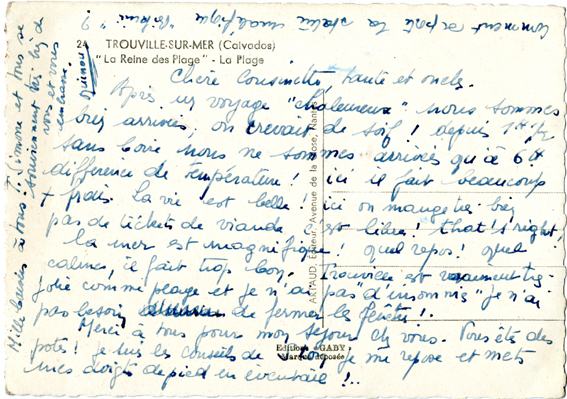 Comment se porte la statue maléfique "Pikini" ?
24 TROUVILLE-SUR-MER (Calvados)
"La Reine des Plage" - La Plage
Chère Cousinette, tante et oncle.
Après un voyage "chaleureux" nous sommes
bien arrivés, on crevait de soif ! depuis 1H 1/2
sans boire nous ne sommes arrivés qu'à 6H
différence de température ! ici il fait beaucoup
+ frais. La vie est belle ! ici on mange très bien
pas de tickets de viande c'est libre ! that's right !
La mer est magnifique. quel repos ! quel
calme, il fait trop bon. Trouville est vraiment très
jolie comme plage et je n'ai pas "d'insomnie" je n'ai
pas besoin de fermer la fenêtre !.
Merci à tous pour mon séjour chez vous. Vous êtes des
potes ! je suis les conseils de je me repose et mets
mes doigts de pied en éventail !..
Mille baisers à tous !! Simone et tous se
souviennent très bien de
vous et vous
embrasse.
ARTAUD, Editeur, Avenue de la Close, Nantes
Editions "GABY"
Marque déposée